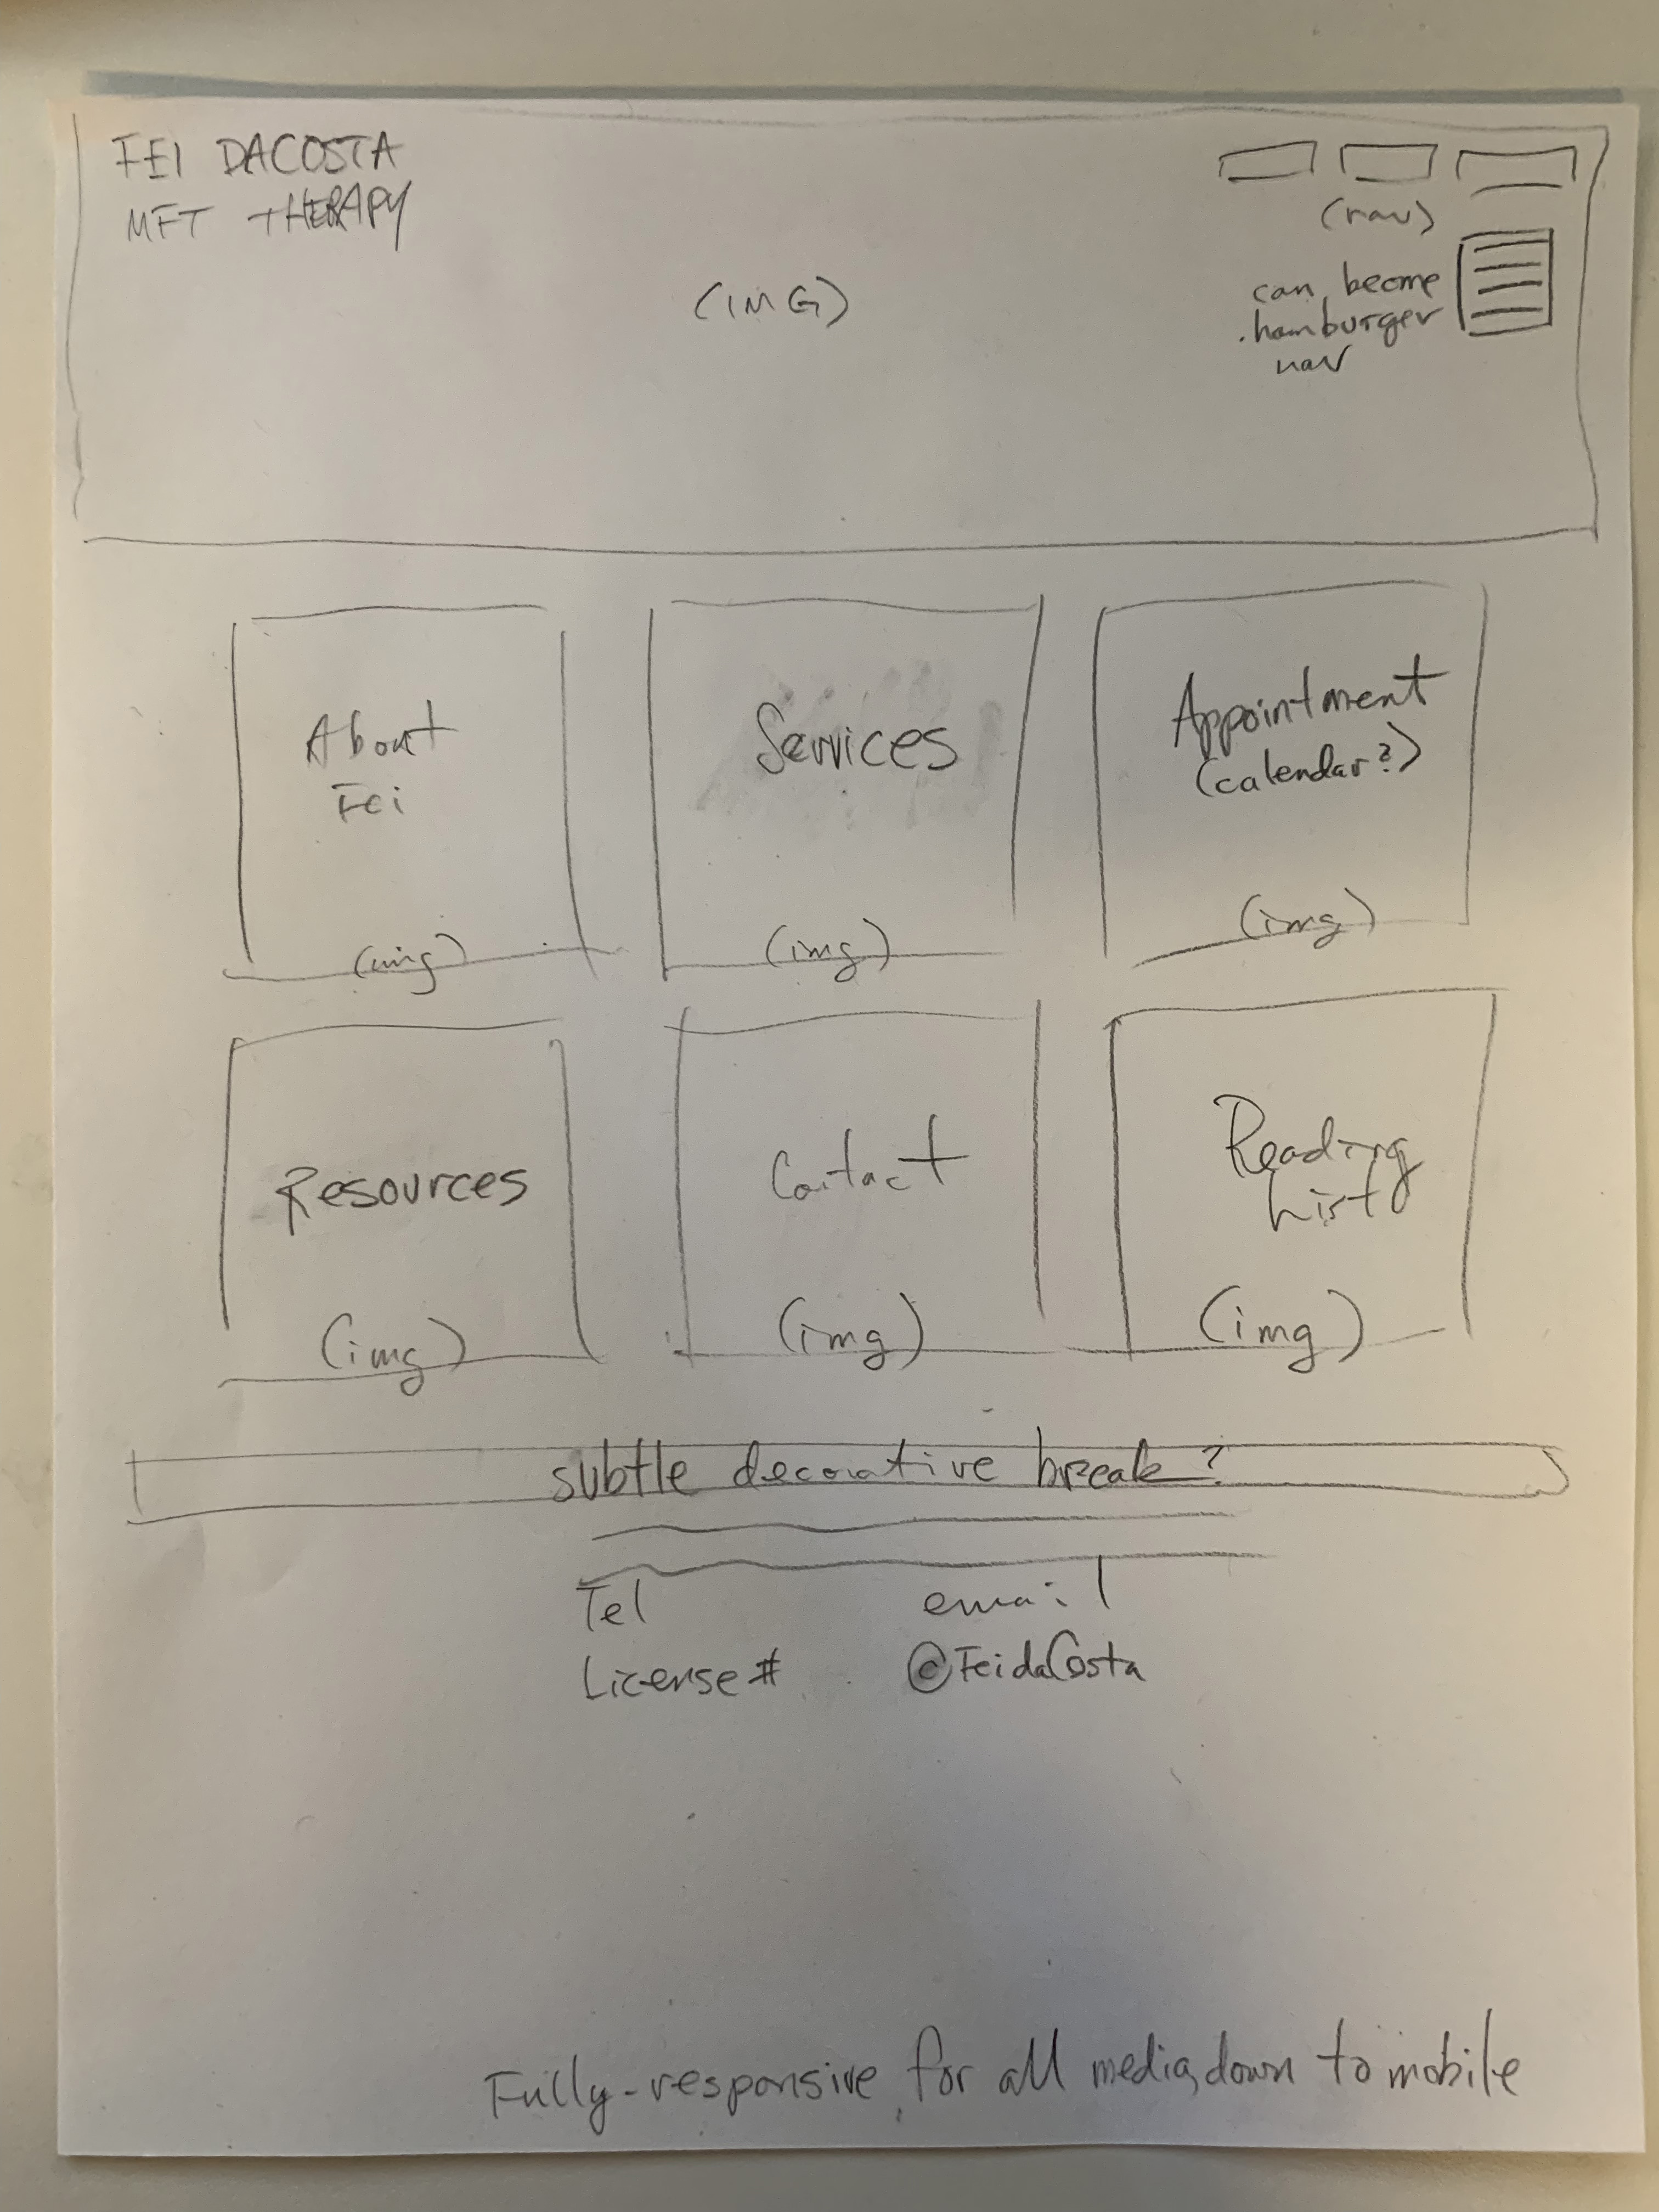 FEI DACOSTA
MFT THERAPY
(nav)
(IMG)
can become
hamburger
nav
About
Fei
(img)
Services
(img)
Appointment
(calendar?)
(img)
Resources
(img)
Contact
(img)
Reading
List
(img)
subtle decorative break?
Tel
email
License #
© Fei daCosta
Fully-responsive for all media, down to mobile